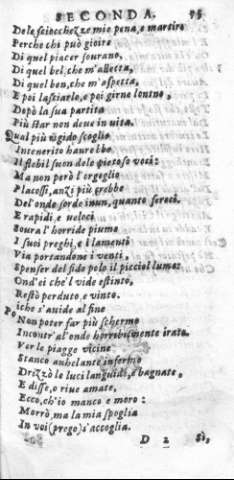 SECONDA. 95
De le sciocchezze mie pena, e martire
Perche chi può gioire
Di quel piacer sourano,
Di quel bel, che m'alletta,
Di quel ben, che m'aspetta,
E poi lasciarlo, e poi girne lontno,
Dopò la sua partita
Più star non deue in vita.
Qual più rigido scoglio
Intenerito haurebbe
Il flebil suon dele pietose voci:
Ma non però l'orgoglio
Placossi, anzi più crebbe
Del'onde sorde inun, quanto feroci.
E rapidi, e veloci
Soura l'horride piume
I suoi preghi, e i lamenti
Via portandone i venti,
Spenser del fido polo il picciol lume:
Ond'ei che'l vide estinto,
Restò perduto, e vinto.
Poiche s'auide al fine
Non poter far più schermo
Incontr'al'onde horribilmente irate.
Ver le piagge vicine
Stanco anhelante infermo
Drizzò le luci languidi, e bagnate,
E disse, o riue amate,
Ecco, ch'io manco e moro:
Morrò, ma la mia spoglia
In voi (prego) s'accoglia.
D 2 Sì,